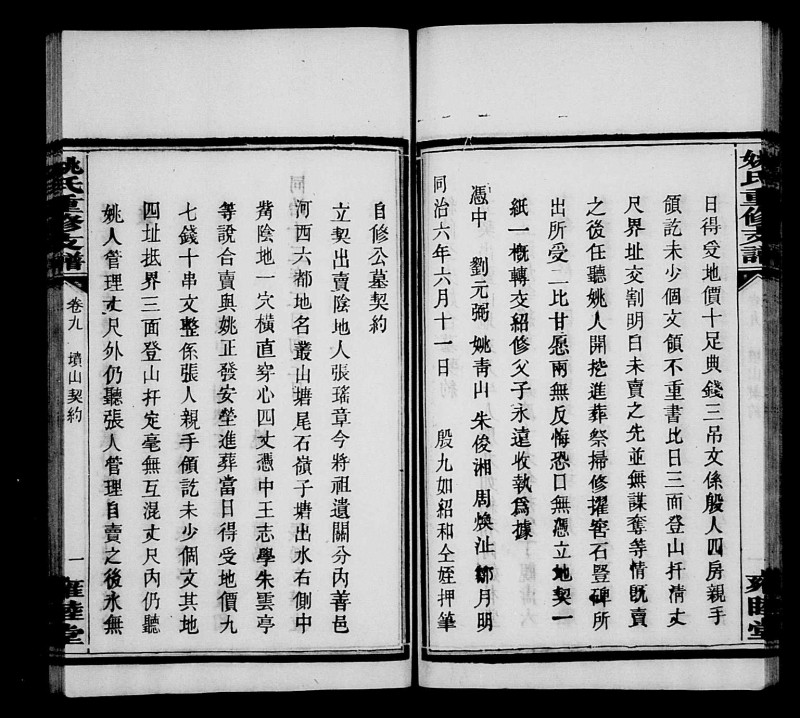 姚氏重修支譜
雍睦堂
日得受地價十足典錢三吊文係殷人四房親手
領訖未少個文領不重書比日三面登山扞清丈
尺界址交割明白未賣之先並無謀奪等情旣賣
之後任聽姚人開挖進葬祭掃修擢窖石豎碑所
出所受二比甘愿兩無反悔恐口無憑立地契一
紙一槪轉交紹修父子永遠收執爲據
憑中 劉元弼 姚靑山 朱俊湘 周煥沚 鄒月明
同治六年六月十一日 殷九如紹和仝姪押筆
自修公墓契約
立契出賣陰地人張瑤章今將祖遺關分內善邑
河西六都地名叢山塘尾石嶺子塘出水右側中
嘴陰地一穴橫直穿心四丈憑中王志學朱雲亭
等說合賣與姚正發安塋進葬當日得受地價九
七錢十串文整係張人親手領訖未少個文其地
四址抵界三面登山扞定毫無互混丈尺內仍聽
姚人管理丈尺外仍聽張人管理自賣之後永無
姚氏重修支譜
卷九 墳山契約
一
雍睦堂